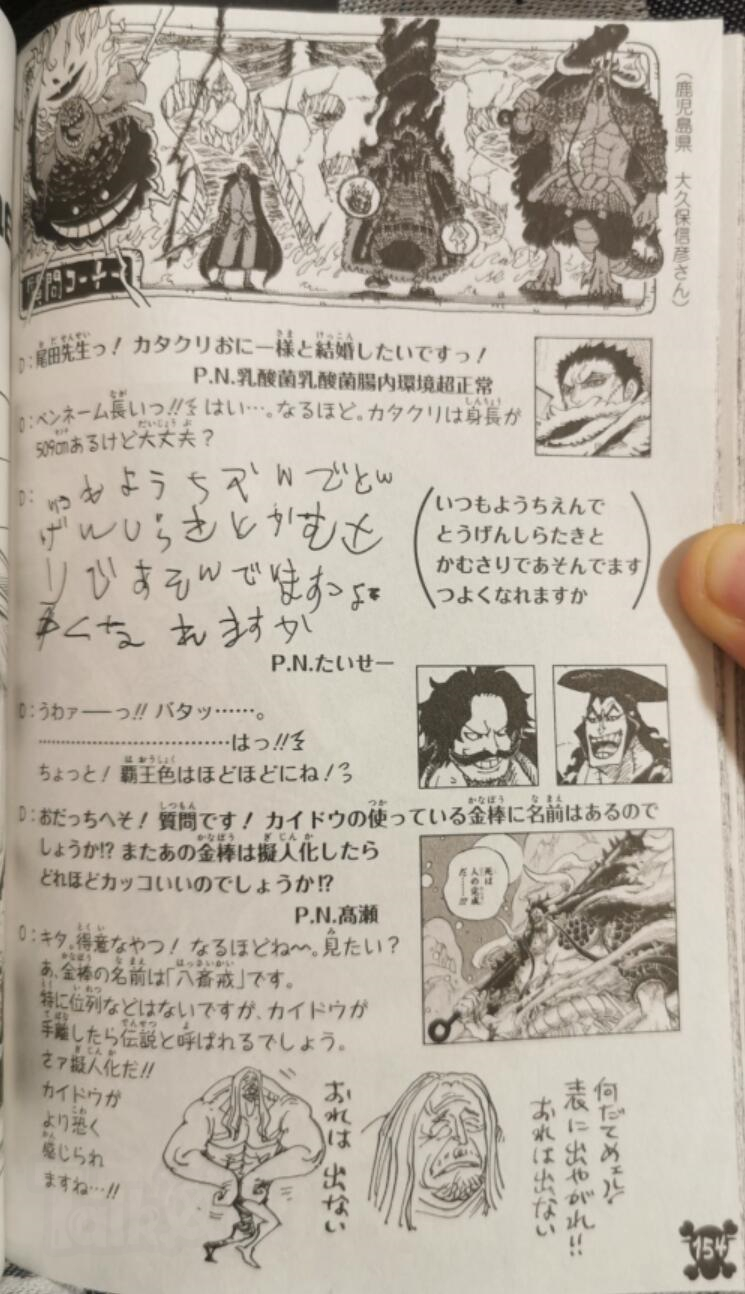 （鹿児島県　大久保信彦さん）
質問コーナー
D：尾田先生っ！ カタクリおにー様と結婚したいですっ！
P.N.乳酸菌乳酸菌腸内環境超正常
O：ペンネーム長いっ!! はい…。なるほど。カタクリは身長が
509cmあるけど大丈夫？
D：いつもようちえんでとう
げんしらたきとかむさ
りであそんでますつよ
くなれますか
（いつもようちえんで
とうげんしらたきと
かむさりであそんでます
つよくなれますか）
P.N.たいせー
O：うわァーーっ!! バタッ……。
………………………………はっ!!
ちょっと！ 覇王色はほどほどにね！
D：おだっちへそ！ 質問です！ カイドウの使っている金棒に名前はあるので
しょうか!? またあの金棒は擬人化したら
どれほどカッコいいのでしょうか!?
P.N.髙瀬
死は
人の完成
だ……!!!
O：キタ。得意なやつ！ なるほどね〜。見たい？
あ、金棒の名前は「八斎戒」です。
特に位列などはないですが、カイドウが
手離したら伝説と呼ばれるでしょう。
さァ擬人化だ!!
カイドウが
より恐く
感じられ
ますね…!!
おれは 出ない
何だてめェら!
表に出やがれ!!
おれは出ない
154